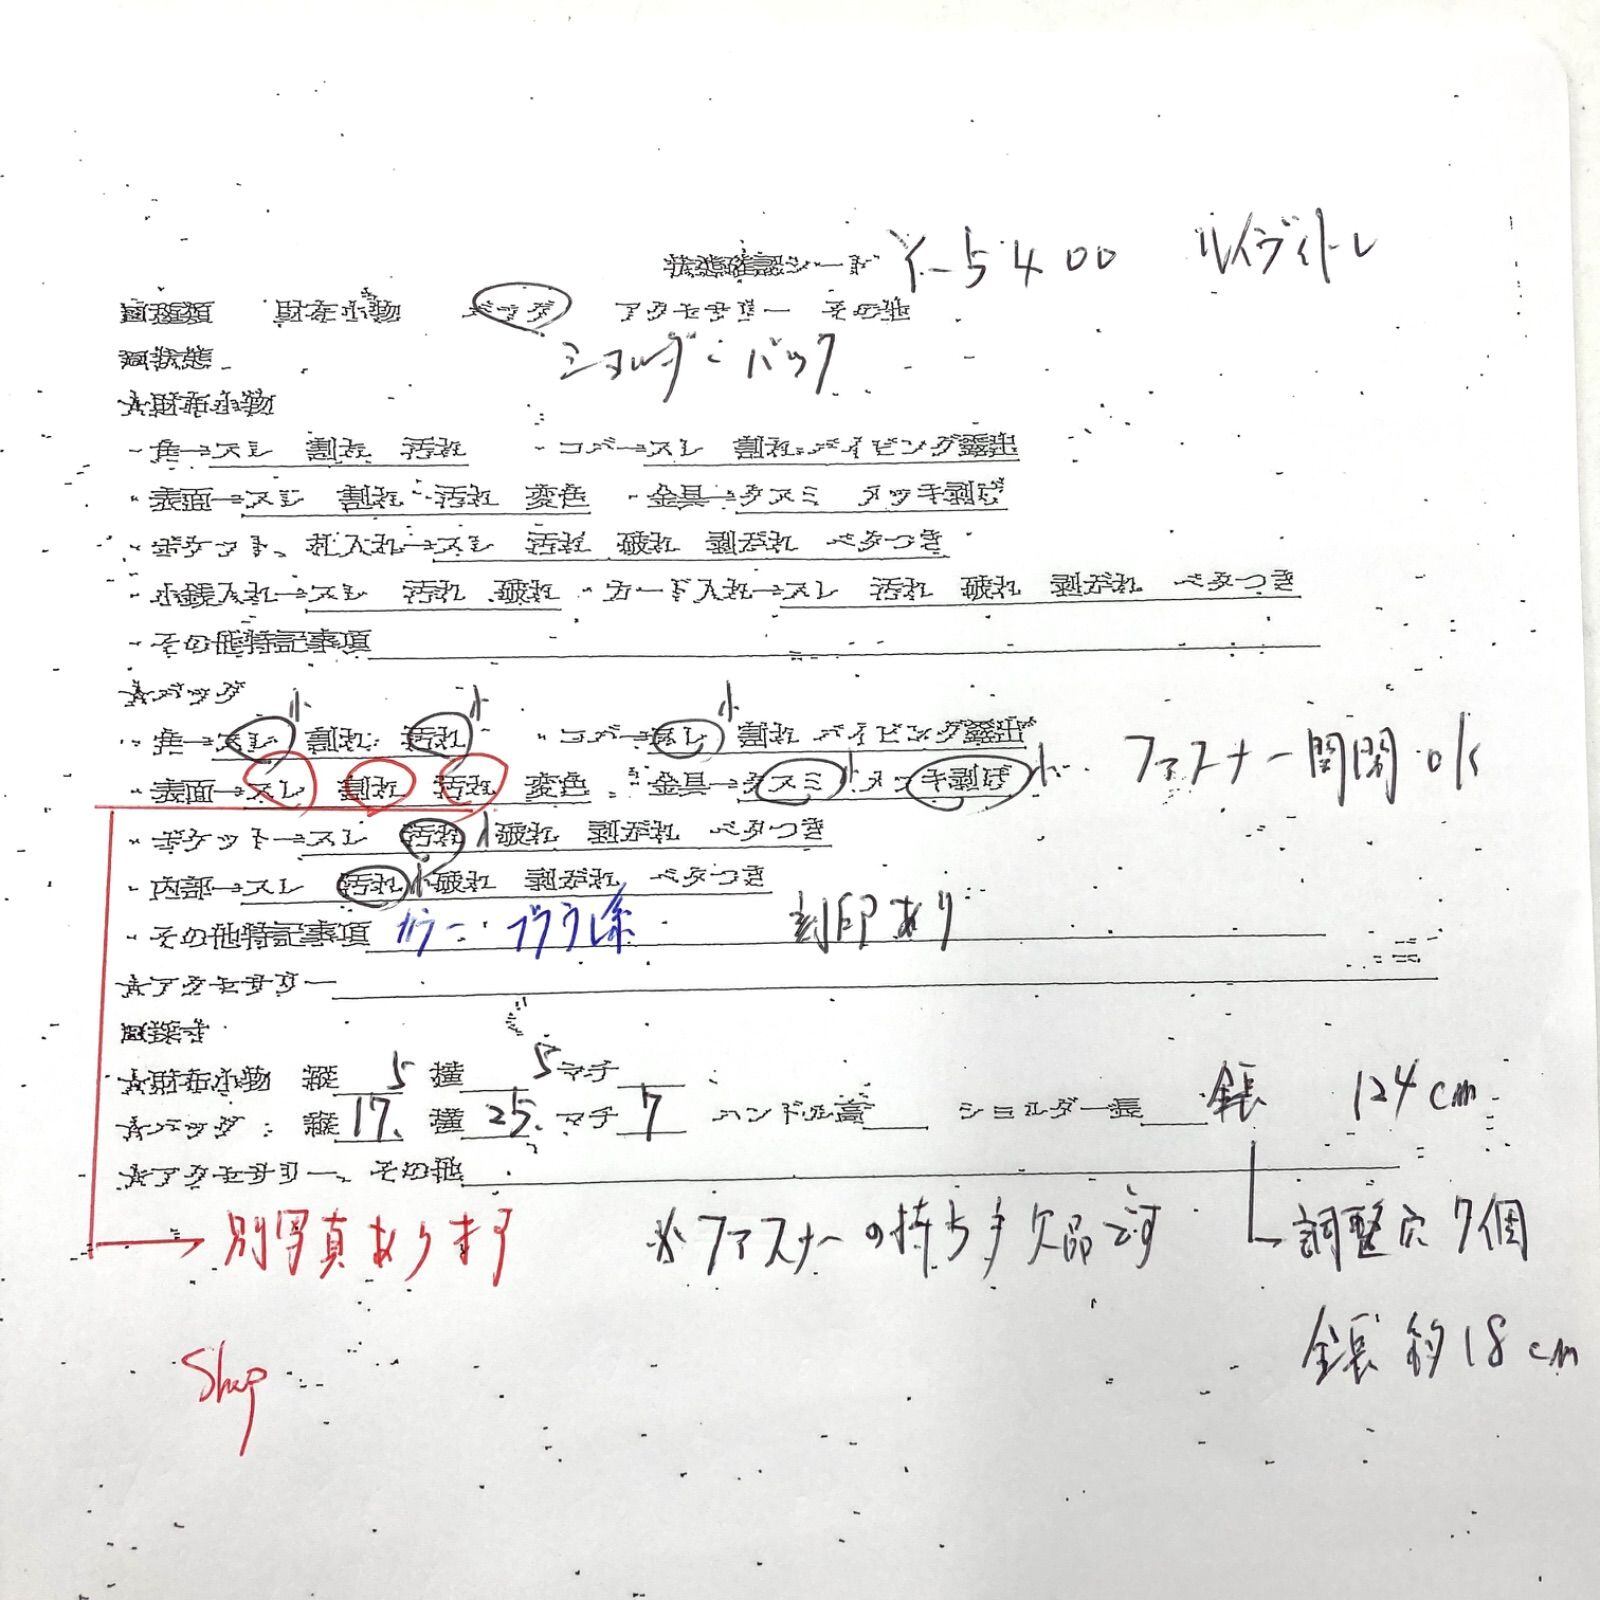 状態確認シート Y-5400 ルイヴィトン
□種類 財布小物 バッグ アクセサリー その他
□状態 ショルダーバック
☆財布小物
・角→スレ 割れ 汚れ ・コバ→スレ 割れ パイピング露出
・表面→スレ 割れ 汚れ 変色 ・金具→クスミ メッキ剥げ
・ポケット、札入れ→スレ 汚れ 破れ 剥がれ ベタつき
・小銭入れ→スレ 汚れ 破れ ・カード入れ→スレ 汚れ 破れ 剥がれ ベタつき
・その他特記事項
☆バッグ
小 小 小
・角→スレ 割れ 汚れ ・コバ→スレ 割れ パイピング露出
・表面→スレ 割れ 汚れ 変色 ・金具→クスミ 小 メッキ剥げ 小 ファスナー開閉OK
・ポケット→スレ 汚れ 小 破れ 剥がれ ベタつき
・内部→スレ 汚れ 小 破れ 剥がれ ベタつき
・その他特記事項 カラー:ブラウン系 刻印あり
☆アクセサリー
□採寸
☆財布小物 縦 5 横 5 マチ
☆バッグ:縦 17. 横 25. マチ 7 ハンドル高 ショルダー長 全長 124cm
☆アクセサリー、その他
別写真あります ※ファスナーの持ち手欠品です 調整穴 7個
全長 約18cm
Shop